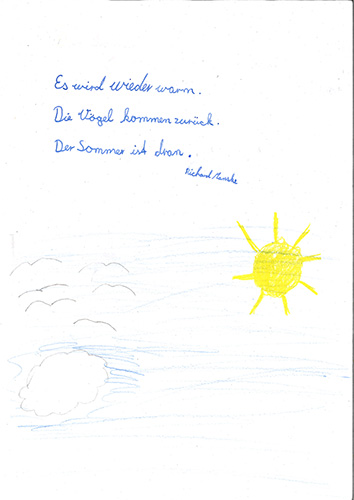 Es wird wieder warm.
Die Vögel kommen zurück.
Der Sommer ist dran.
Richard